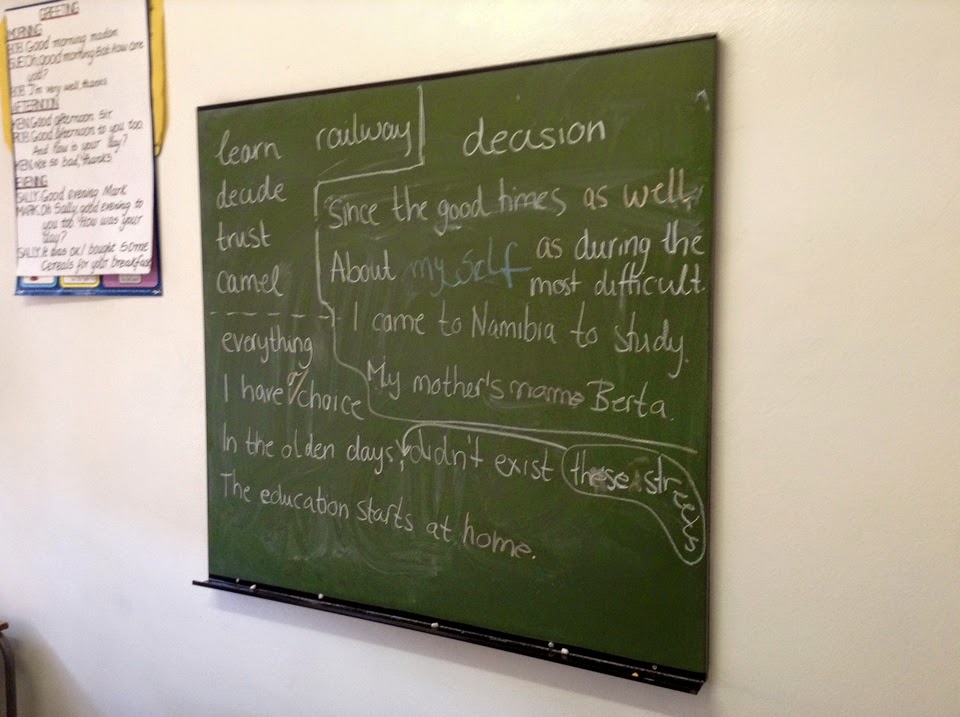 GREETING
MORNING
BOB: Good morning madam
SUE: Oh, good morning Bob. How are
you?
BOB: I'm very well, thanks
AFTERNOON
KEN: Good afternoon Sir
ROB: Good afternoon to you too.
And how is your day?
KEN: Not so bad, thanks
EVENING
SALLY: Good evening Mark
MARK: Oh Sally, good evening to
you too. How was your
day?
SALLY: It was ok I bought some
Cereals for your breakfast
learn
railway
decide
trust
camel
decision
Since the good times, as well,
as during the
most difficult.
About myself
I came to Namibia to study.
My mother's name Berta.
everything
I have a choice
In the olden days, didn't exist these streets
The education starts at home.